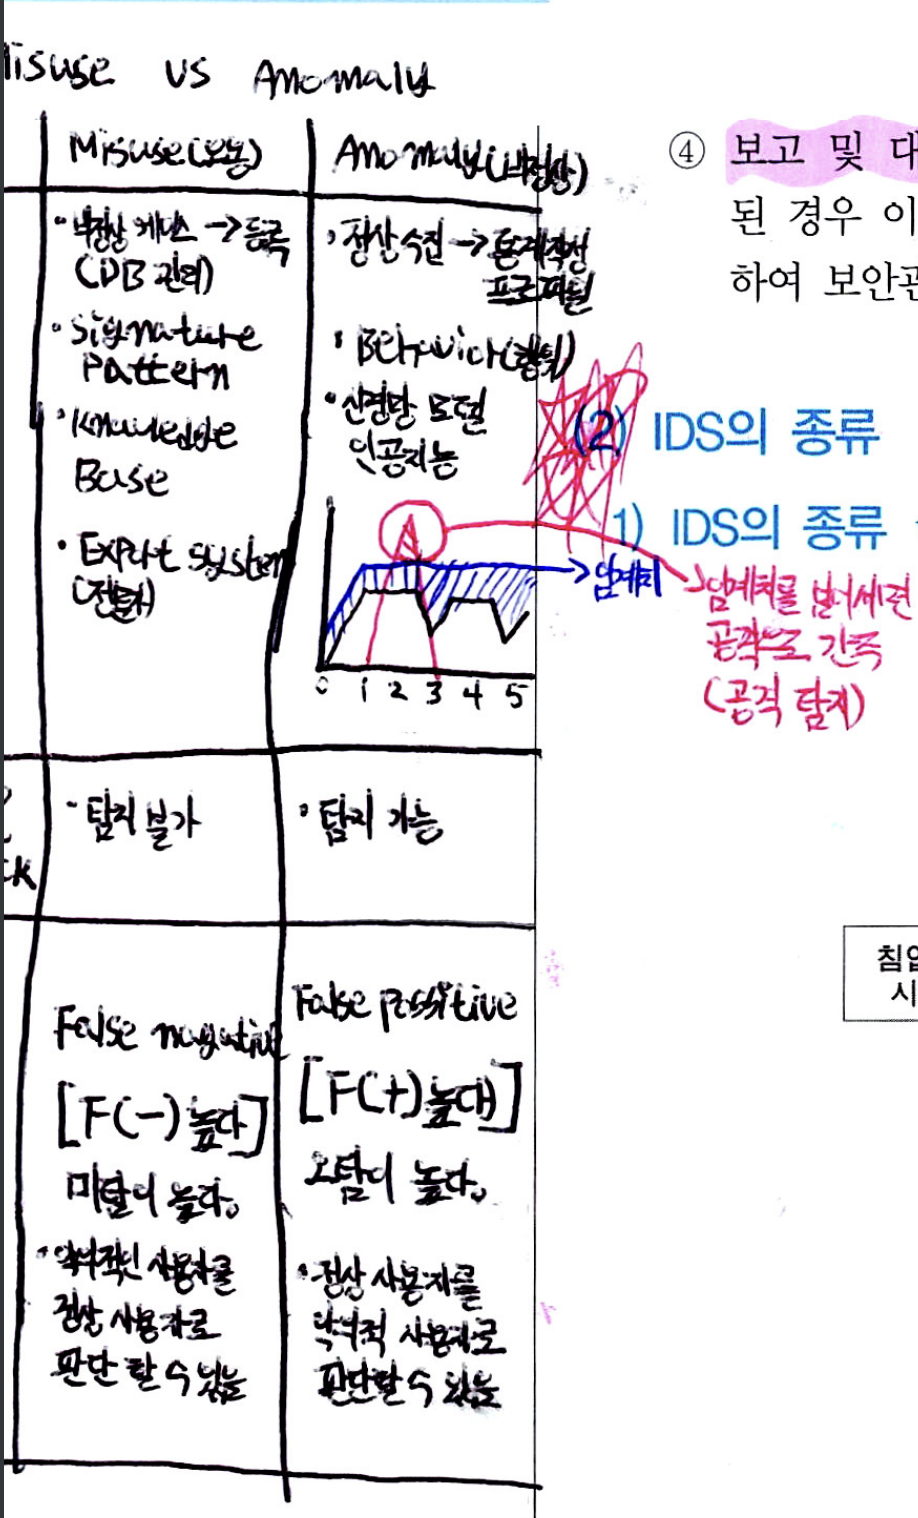 Misuse vs Anomaly
Misuse(오용)
Anomaly(비정상)
• 비정상 케이스 → 등록
(DB 관리)
• Signature
Pattern
• Knowledge
Base
• Expert System
(전문가)
• 정상수집 → 통계작성
프로파일
• Behavior(행위)
• 신경망 모델
인공지능
임계치
임계치를 넘어서면
공격으로 간주
(공격 탐지)
0 1 2 3 4 5
CK
• 탐지 불가
• 탐지 가능
False negative
[F(-) 높다]
미탐이 높다.
• 악의적인 사용자를
정상 사용자로
판단 할 수 있음
False possitive
[F(+) 높다]
오탐이 높다.
• 정상 사용자를
악의적 사용자로
판단할 수 있음
④ 보고 및 대
된 경우 이
하여 보안관
(2) IDS의 종류
1) IDS의 종류
침입
시